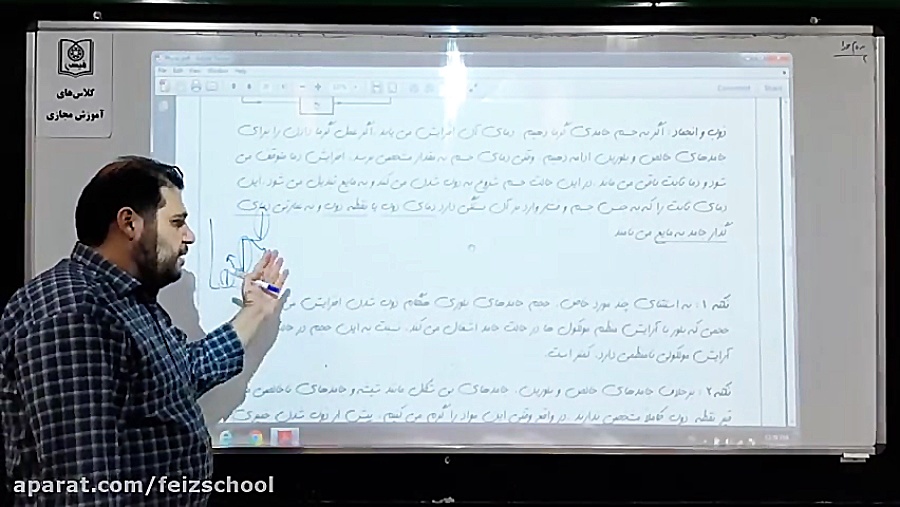 فیض
کلاس‌های
آموزش مجازی
ذوب و انجماد: اگر به جسم جامدی گرما دهیم دمای آن افزایش می یابد. اگر عمل گرما دادن را برای
جامدهای خالص و بلورین ادامه دهیم، وقتی دمای جسم به مقدار مشخصی برسد، افزایش دما متوقف می
شود و دما ثابت باقی می ماند. در این حالت جسم شروع به ذوب شدن می کند و به مایع تبدیل می شود. این
دمای ثابت را که به جنس جسم و فشار وارد بر آن بستگی دارد دمای ذوب یا نقطه ذوب و به عبارتی دمای
گذار جامد به مایع می نامند
نکته 1: به استثنای چند مورد خاص، حجم جامدهای بلوری هنگام ذوب شدن افزایش می
حجمی که بلور با آرایش منظم مولکول ها در حالت جامد اشغال می کند، نسبت به این حجم در
آرایش مولکولی نامنظمی دارد، کمتر است.
نکته 2: برخلاف جامدهای خالص و بلورین، جامدهای بی شکل مانند شیشه و جامدهای ناخالص
قیر نقطه ذوب کاملا مشخصی ندارند. در واقع وقتی این مواد را گرم می کنیم، پیش از ذوب شدن خمیری
aparat.com/feizschool